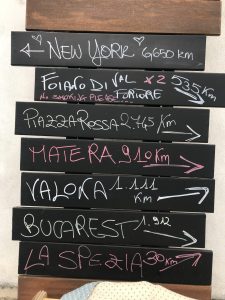 ← NEW YORK 6650 km
FOIANO DI VAL FORTORE x2 535 Km →
NO SMOKING PLEASE
PIAZZA ROSSA 2.745 Km
MATERA 910 Km →
VALONA 1.111 Km →
BUCAREST 1.912 →
LA SPEZIA 30 Km →